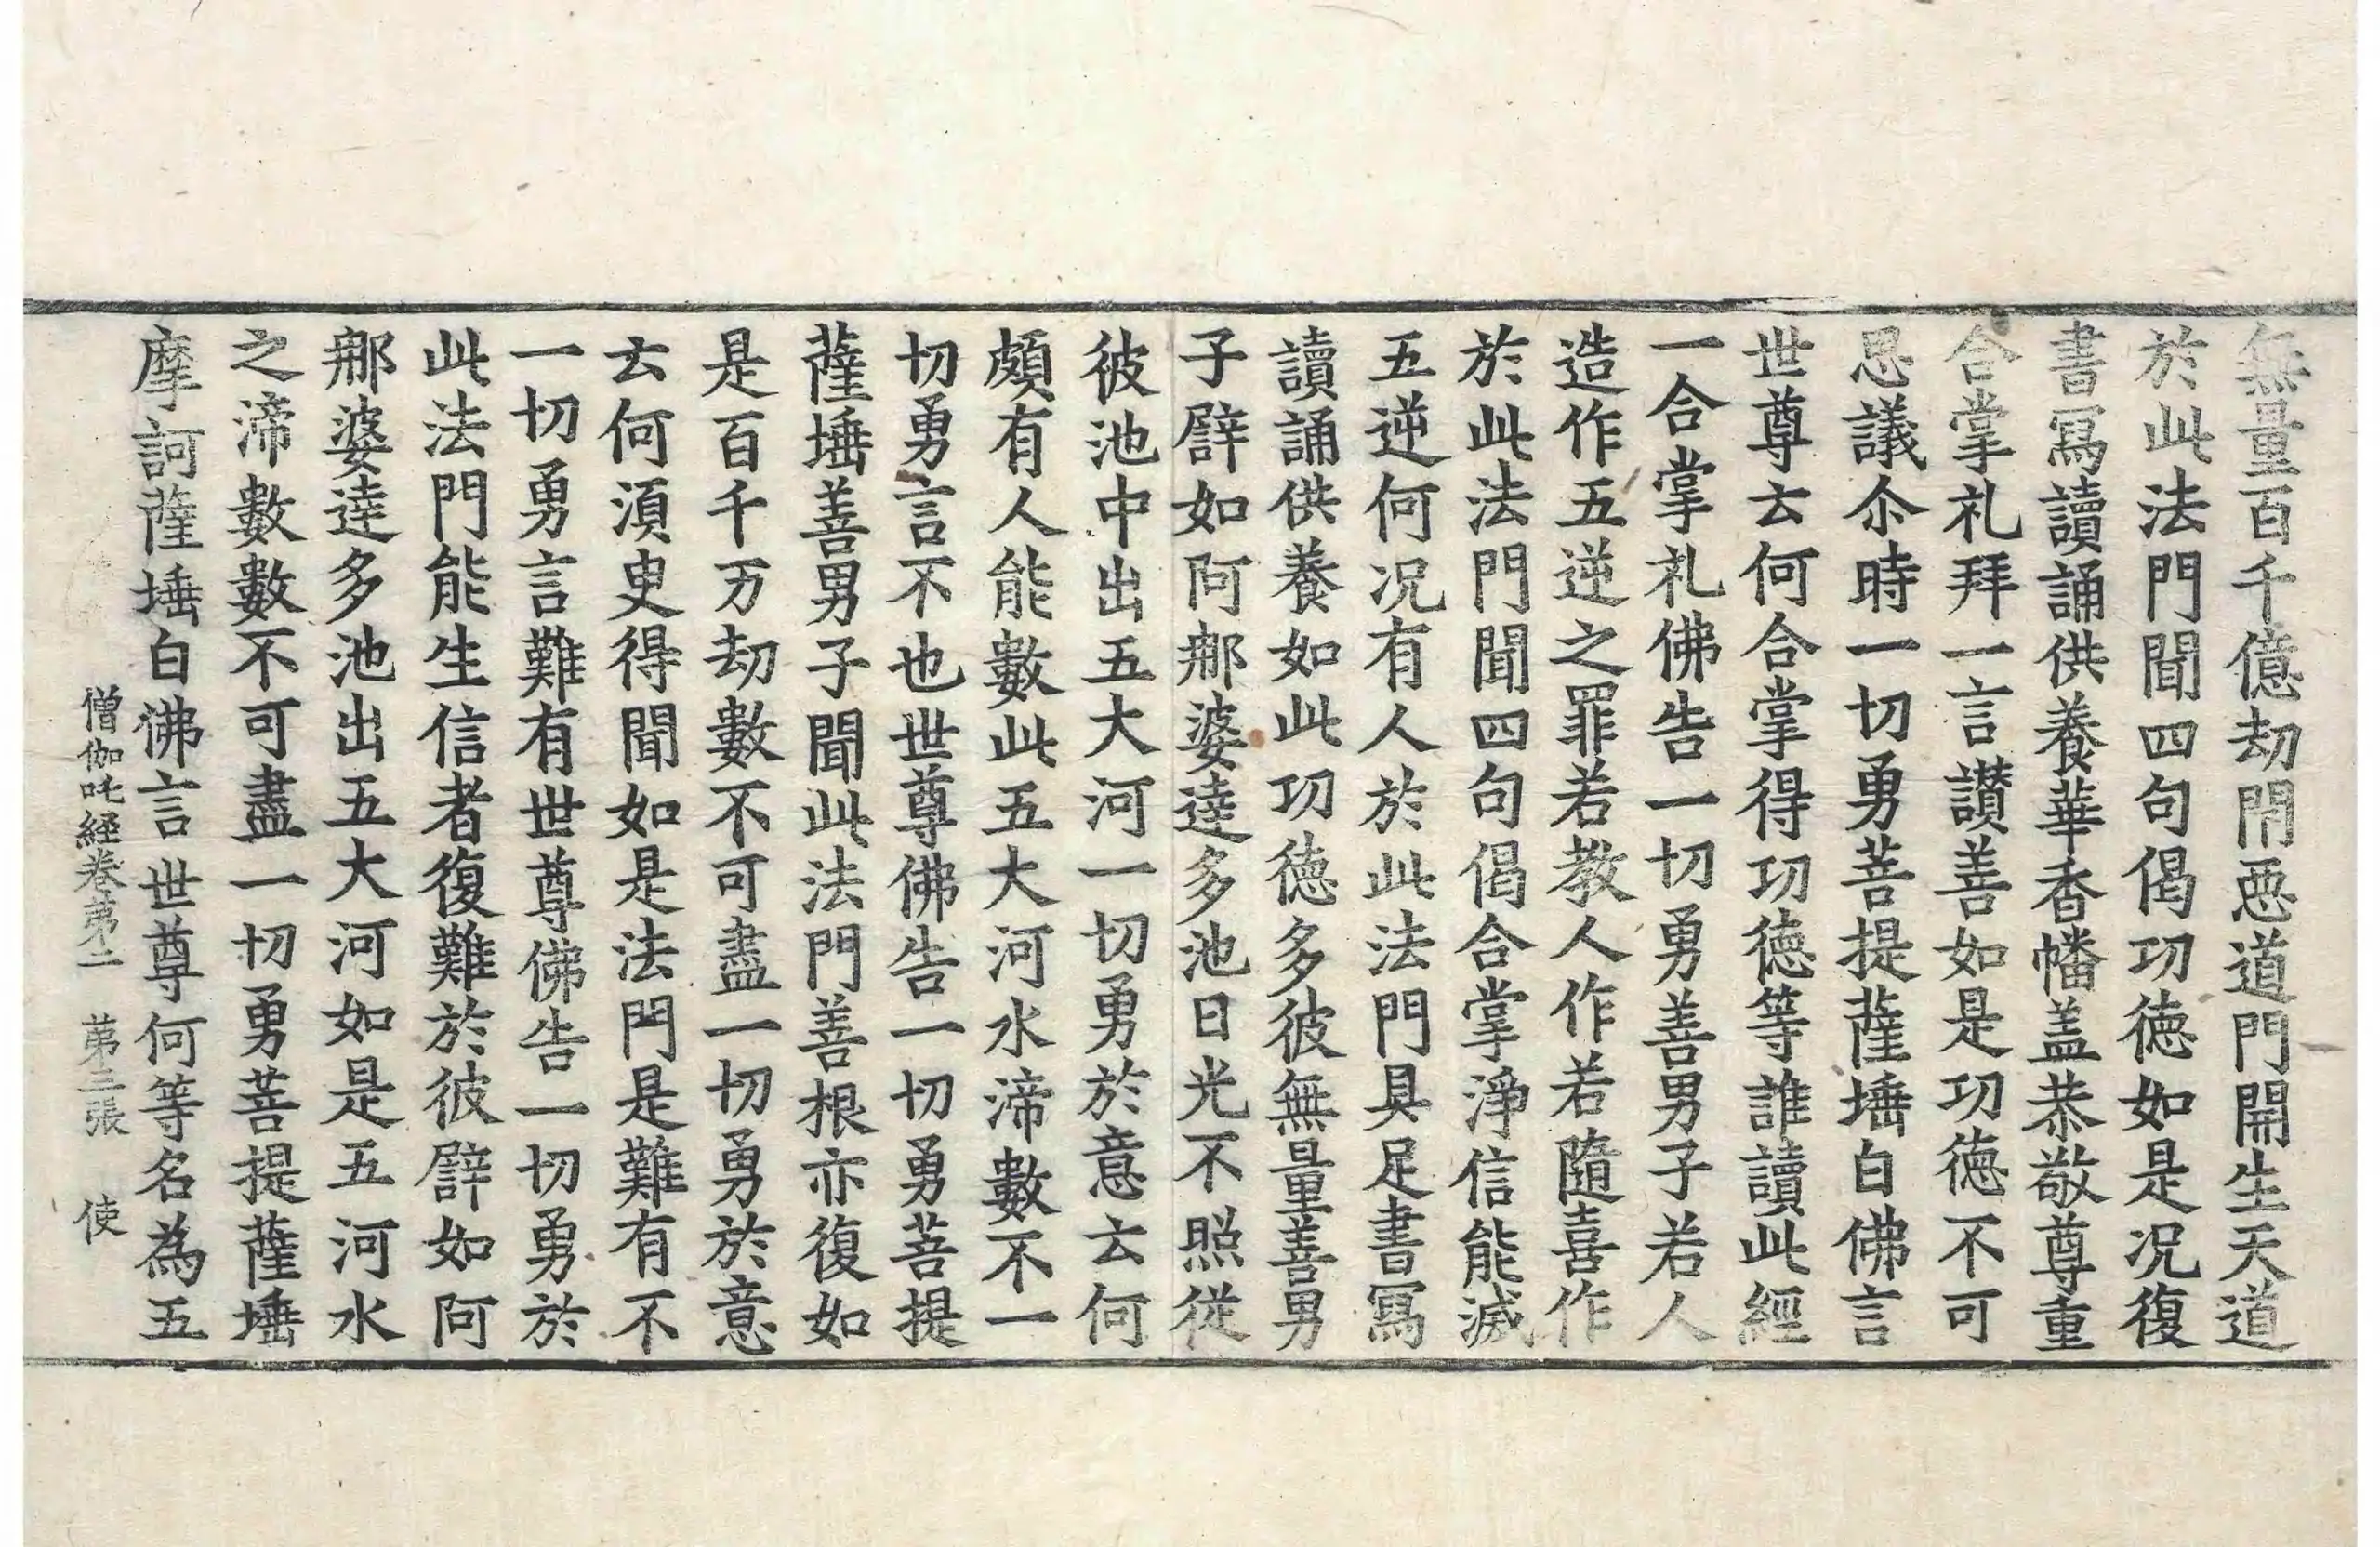 無量百千億劫閇惡道門開生天道
於此法門聞四句偈功徳如是况復
書寫讀誦供養華香幡盖恭敬尊重
合掌礼拜一言讃善如是功徳不可
思議尒時一切勇菩提薩埵白佛言
世尊云何合掌得功徳等誰讀此經
一合掌礼佛告一切勇善男子若人
造作五逆之罪若教人作若隨喜作
於此法門聞四句偈合掌淨信能滅
五逆何况有人於此法門具足書寫
讀誦供養如此功徳多彼無量善男
子譬如阿那婆達多池日光不照從
彼池中出五大河一切勇於意云何
頗有人能數此五大河水渧數不一
切勇言不也世尊佛告一切勇菩提
薩埵善男子聞此法門善根亦復如
是百千万劫數不可盡一切勇於意
云何湏臾得聞如是法門是難有不
一切勇言難有世尊佛告一切勇於
此法門能生信者復難於彼譬如阿
那婆達多池出五大河如是五河水
之渧數數不可盡一切勇菩提薩埵
摩訶薩埵白佛言世尊何等名為五
僧伽吒經卷苐二　苐三張　使